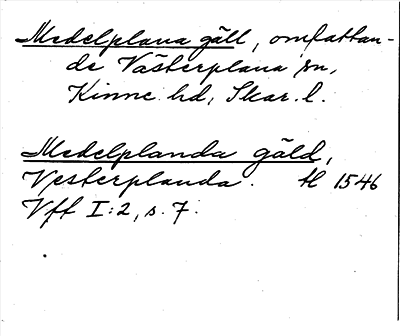 Medelplana gäll, omfattan-
de Västerplana sn,
Kinne hd, Skar. l.
Medelplanda gäld,
Vesterplanda. H 1546
Vff I:2, s. 7.